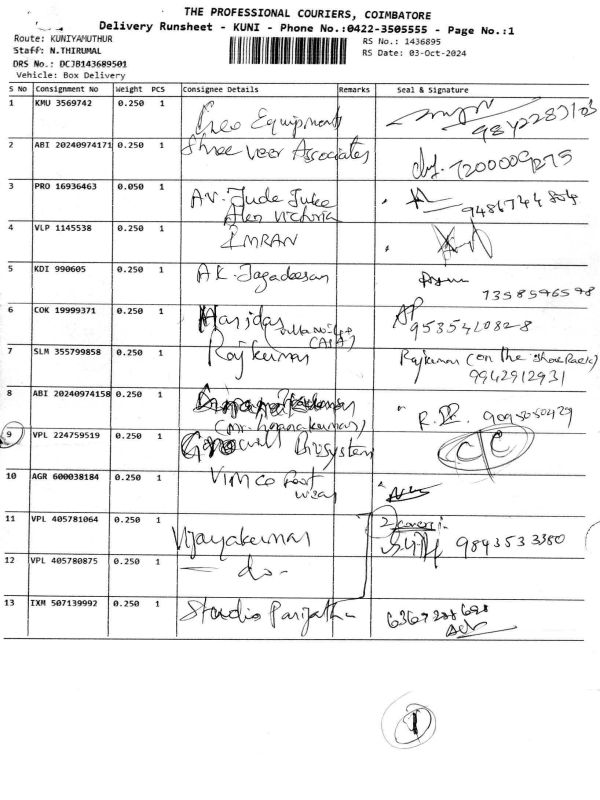 THE PROFESSIONAL COURIERS, COIMBATORE
Delivery Runsheet - KUNI - Phone No.:0422-3505555 - Page No.:1
Route: KUNIYAMUTHUR
RS No.: 1436895
Staff: N.THIRUMAL
RS Date: 03-Oct-2024
DRS No.: DCJB143689501
Vehicle: Box Delivery
S No Consignment No Weight PCS Consignee Details Remarks Seal & Signature
1 KMU 3569742 0.250 1 Equipments
2 ABI 20240974171 0.250 1 Shree Veer Associates 7200009275
3 PRO 16936463 0.050 1 AV. Jude Juke
Alex Victoria
4 VLP 1145538 0.250 1 IMRAN
5 KDI 990605 0.250 1 A K. Jagadeesan
7358596598
6 COK 19999371 0.250 1 Haridas
9535410828
7 SLM 355799858 0.250 1 Rajkumar Rajkumar (on the Shoe Rack)
9942912931
8 ABI 20240974158 0.250 1
9 VPL 224759519 0.250 1 Biosystem CC
10 AGR 600038184 0.250 1 Vimco Foot
wear
11 VPL 405781064 0.250 1 Vijayakumar 2 covers
9843533380
12 VPL 405780875 0.250 1 - do -
13 IXM 507139992 0.250 1 Studio Parijatha
1